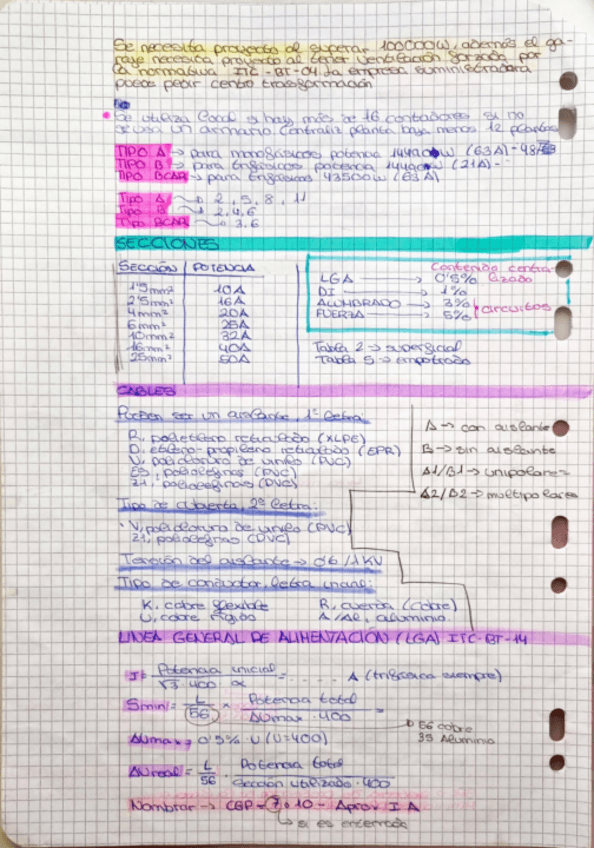 Se necesita proyecto al superar 100000W, además el ga-
raje necesita proyecto al tener ventilación forzada por
la normativa ITC-BT-04 la empresa suministradora
puede pedir centro transformación
Se utiliza local si hay más de 16 contadores si no
se usa un armario. Centraliz planta baja menos 12 plantas
TIPO A → para monofásicos potencia 14490W (63A)
TIPO B → para trifásicos potencia 14490W (21A)-
TIPO BCAR → para trifásicos 43500W (63A)
Tipo A → 2, 5, 8, 11
Tipo B → 2,4,6
Tipo BCAR → 3,6
SECCIONES
SECCIÓN | POTENCIA
1'5mm² 10A
2'5mm² 16A
4mm² 20A
6mm² 25A
10mm² 32A
16mm² 40A
25mm² 50A
Contenido contra-
lizado
LGA → 0'5%
DI → 1%
ALUMBRADO → 3%
FUERZA → 5%
circuitos
Tabla 2 → superficial
Tabla 5 → empotrado
CABLES
Pueden ser un aislante, 1ª letra:
R, polietileno reticulado (XLPE)
D, etileno-propileno reticulado (EPR)
V, policloruro de vinilo (PVC)
Z1, poliolefinas (PVC)
A → con aislante
B → sin aislante
A1/B1 → unipolares
A2/B2 → multipolares
Tipo de cubierta, 2ª letra:
· V, policloruro de vinilo (PVC)
Z1, poliolefinas (PVC)
Tensión del aislante → 0'6/1KV
Tipo de conductor, letra final:
K, cobre flexible
U, cobre rígido
R, cuerda (cobre)
A/AL, aluminio.
LINEA GENERAL DE ALIMENTACIÓN (LGA) ITC-BT-14
I = Potencia inicial / √3 · 400 · = ..... A (trifásica siempre)
Smin = L/56 × Potencia total / ΔUmax · 400 =
56 cobre
35 Aluminio
ΔUmax = 0'5% · U (U=400)
ΔUreal = L/56 · Potencia total / Sección utilizada · 400
Nombrar → CGP - 7 o 10 - I A
↳ si es enterrada